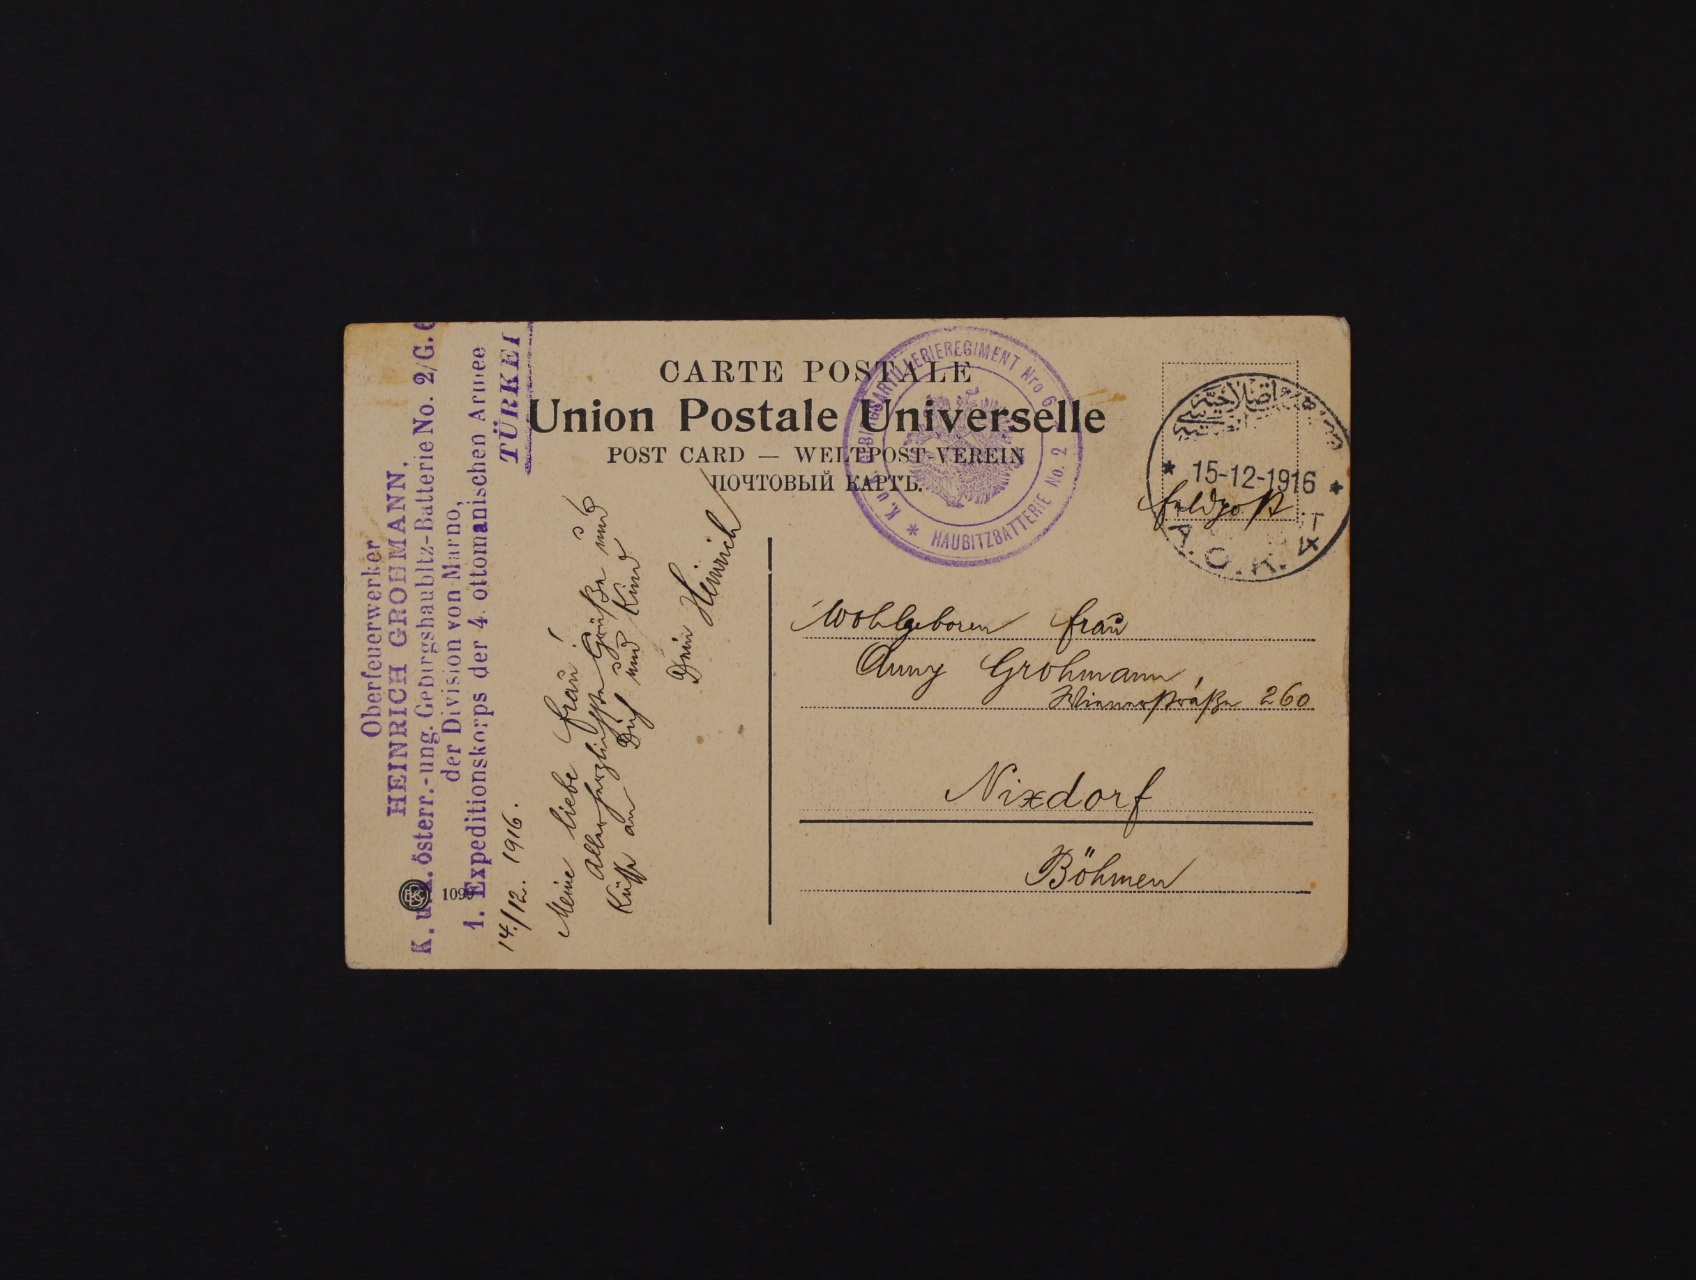 CARTE POSTALE
Union Postale Universelle
POST CARD — WELTPOST-VEREIN
ПОЧТОВЫЙ КАРТЪ.
Oberfeuerwerker
HEINRICH GROHMANN,
K. u. k. österr.-ung. Gebirgshaubitz-Batterie No. 2/G. 6
der Division von Marno,
1. Expeditionskorps der 4. ottomanischen Armee
TÜRKEI
14./12. 1916.
Meine liebe Frau!
Allerherzlichste Grüße und
Küsse an Dich und Kind
Dein Heinrich
K. u. k. GEBIRGSARTILLERIEREGIMENT Nro 6
HAUBITZBATTERIE No. 2
15-12-1916
Feldpost
A.O.K. 4
Wohlgeboren Frau
Anny Grohmann
Wienerstraße 260
Nixdorf
Böhmen
BKS
109